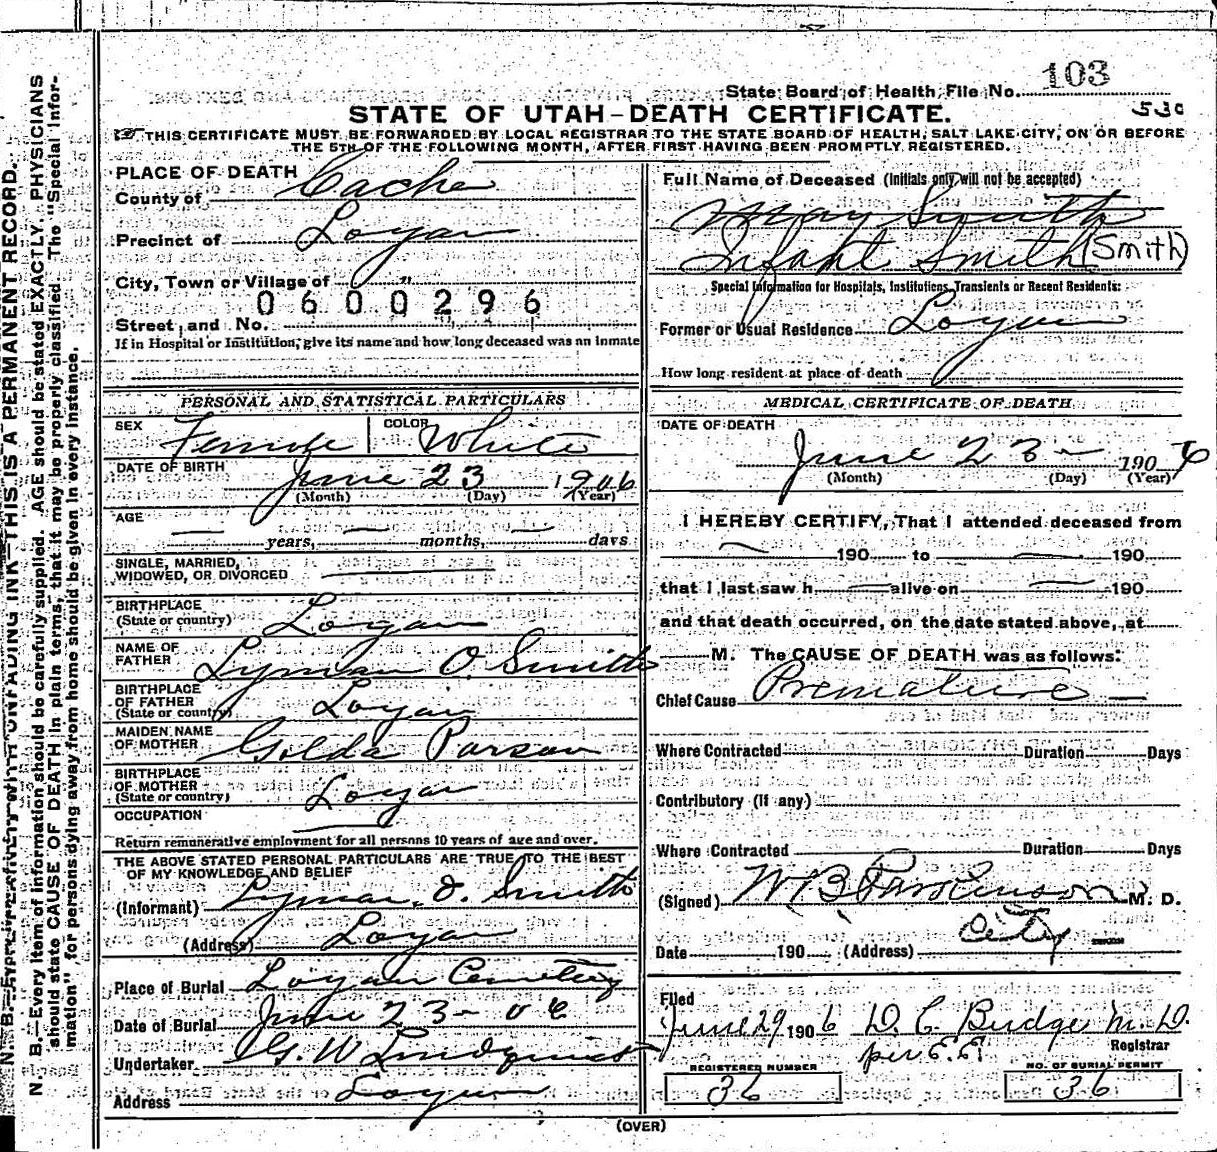 State Board of Health, File No. 103
530
STATE OF UTAH-DEATH CERTIFICATE.
THIS CERTIFICATE MUST BE FORWARDED BY LOCAL REGISTRAR TO THE STATE BOARD OF HEALTH, SALT LAKE CITY, ON OR BEFORE
THE 5TH OF THE FOLLOWING MONTH, AFTER FIRST HAVING BEEN PROMPTLY REGISTERED.
PLACE OF DEATH
County of Cache
Precinct of Logan
City, Town or Village of "
0600296
Street and No.
If in Hospital or Institution, give its name and how long deceased was an inmate
PERSONAL AND STATISTICAL PARTICULARS
SEX Female COLOR White
DATE OF BIRTH June 23 1906
(Month) (Day) (Year)
AGE
— years, — months, — days
SINGLE, MARRIED,
WIDOWED, OR DIVORCED
BIRTHPLACE
(State or country) Logan
NAME OF
FATHER Lyman O. Smith
BIRTHPLACE
OF FATHER
(State or country) Logan
MAIDEN NAME
OF MOTHER Golda Parson
BIRTHPLACE
OF MOTHER
(State or country) Logan
OCCUPATION
Return remunerative employment for all persons 10 years of age and over.
THE ABOVE STATED PERSONAL PARTICULARS ARE TRUE TO THE BEST
OF MY KNOWLEDGE AND BELIEF
(Informant) Lyman O. Smith
(Address) Logan
Place of Burial Logan Cemetery
Date of Burial June 23-06
Undertaker G. W Lindquist
Address Logan
Full Name of Deceased (Initials only will not be accepted)
May Smith
Infant Smith (Smith)
Special Information for Hospitals, Institutions, Transients or Recent Residents:
Former or Usual Residence Logan
How long resident at place of death
MEDICAL CERTIFICATE OF DEATH
DATE OF DEATH
June 23 - 1906
(Month) (Day) (Year)
I HEREBY CERTIFY, That I attended deceased from
— 190 to — 190
that I last saw h — alive on — 190
and that death occurred, on the date stated above, at
M. The CAUSE OF DEATH was as follows:
Chief Cause Premature —
Where Contracted Duration Days
Contributory (if any)
Where Contracted Duration Days
(Signed) W B Parkinson M. D.
Date 190 (Address) City
Filed
June 29 1906 D. C Budge M. D.
Registrar
per E.E
REGISTERED NUMBER
36
NO. OF BURIAL PERMIT
36
(OVER)
THIS IS A PERMANENT RECORD.
N. B.—Every item of information should be carefully supplied. AGE should be stated EXACTLY. PHYSICIANS
should state CAUSE OF DEATH in plain terms, that it may be properly classified. The "Special Infor-
mation" for persons dying away from home should be given in every instance.